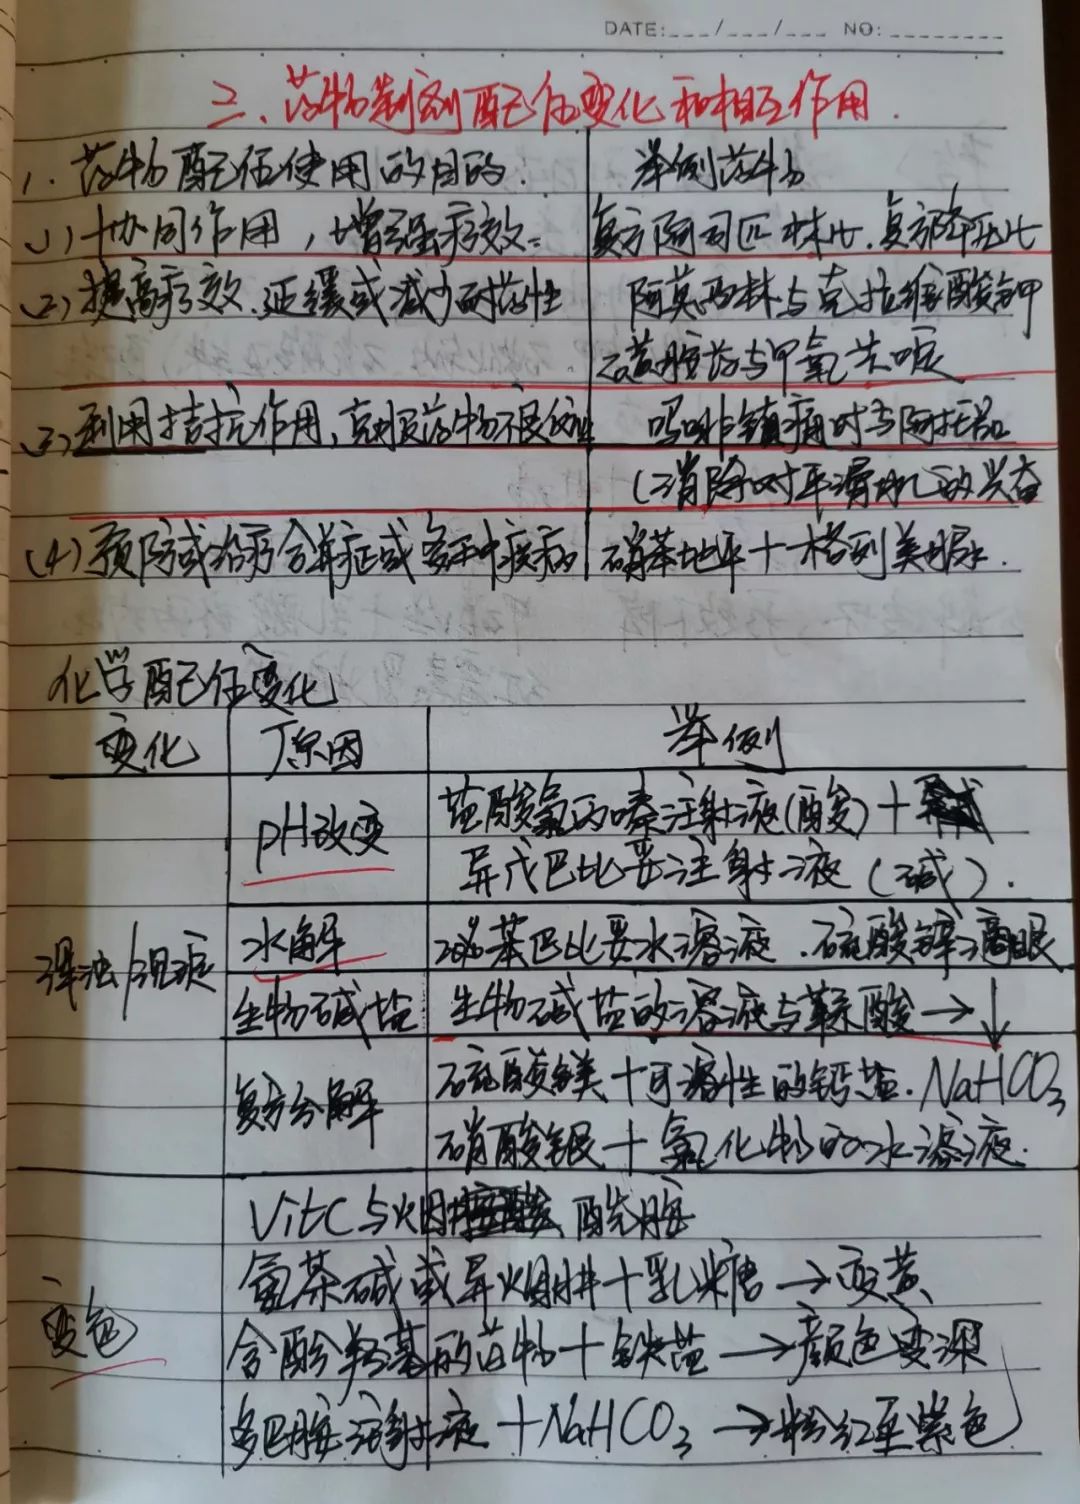 DATE:___/___/___ NO:________
二、药物制剂配伍变化和相互作用.
1. 药物配伍使用的目的. 举例药物
(1)协同作用,增强疗效= 复方阿司匹林片.复方降压片
(2)提高疗效.延缓或减少耐药性 阿莫西林与克拉维酸钾
磺胺药与甲氧苄啶
(3)利用拮抗作用,克服药物不良 吗啡镇痛时与阿托品
(消除对平滑肌的兴奋
(4)预防或治疗合并症或多种疾病 硝苯地平+格列美脲.
化学配伍变化
变化 原因 举例
pH改变 盐酸氯丙嗪注射液(酸)+
异戊巴比妥注射液(碱).
浑浊/沉淀 水解 苯巴比妥水溶液.硫酸锌滴眼
生物碱盐 生物碱盐的溶液与鞣酸→↓
复分解 硫酸镁+可溶性的钙盐.NaHCO3
硝酸银+氯化物的水溶液.
VitC与烟酰胺
氨茶碱或异烟肼+乳糖→变黄
变色 含酚羟基的药物+铁盐→颜色变深
多巴胺注射液+NaHCO3→粉红至紫色